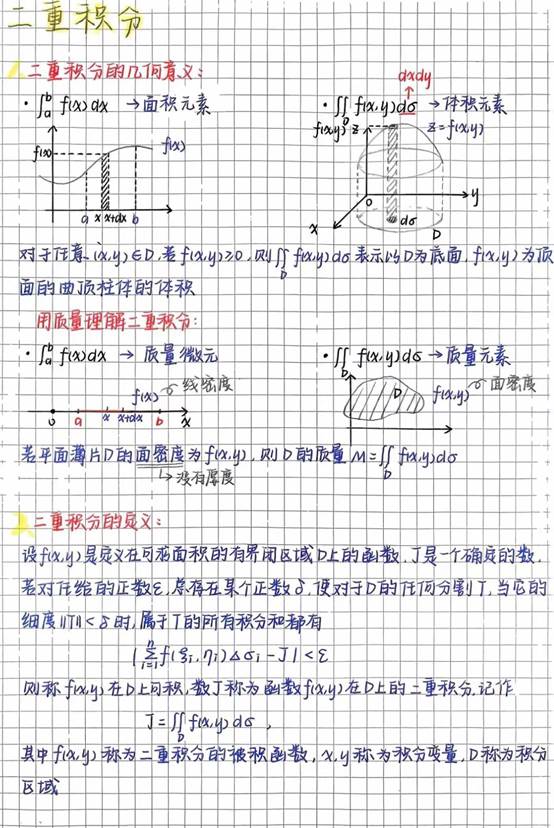 二重积分
1. 二重积分的几何意义:
dxdy
· ∫ₐᵇ f(x)dx → 面积元素
· ∬_D f(x,y)dσ → 体积元素
f(x,y) z z=f(x,y)
f(x) f(x)
a x x+dx b
0 y
x dσ D
对于任意 (x,y)∈D,若 f(x,y)≥0,则∬_D f(x,y)dσ 表示以D为底面,f(x,y)为顶
面的曲顶柱体的体积
用质量理解二重积分:
· ∫ₐᵇ f(x)dx → 质量微元
· ∬_D f(x,y)dσ → 质量元素
f(x) 线密度
D f(x,y) 面密度
0 a x x+dx b x
若平面薄片D的面密度为f(x,y),则D的质量 M=∬_D f(x,y)dσ
↳没有厚度
2. 二重积分的定义:
设f(x,y)是定义在可求面积的有界闭区域D上的函数,J是一个确定的数,
若对任给的正数ε,总存在某个正数δ,使对于D的任何分割T,当它的
细度||T||<δ时,属于T的所有积分和都有
|∑ᵢ₌₁ⁿ f(ξᵢ,ηᵢ)Δσᵢ-J|<ε
则称f(x,y)在D上可积,数J称为函数f(x,y)在D上的二重积分,记作
J=∬_D f(x,y)dσ,
其中f(x,y)称为二重积分的被积函数,x,y称为积分变量,D称为积分
区域